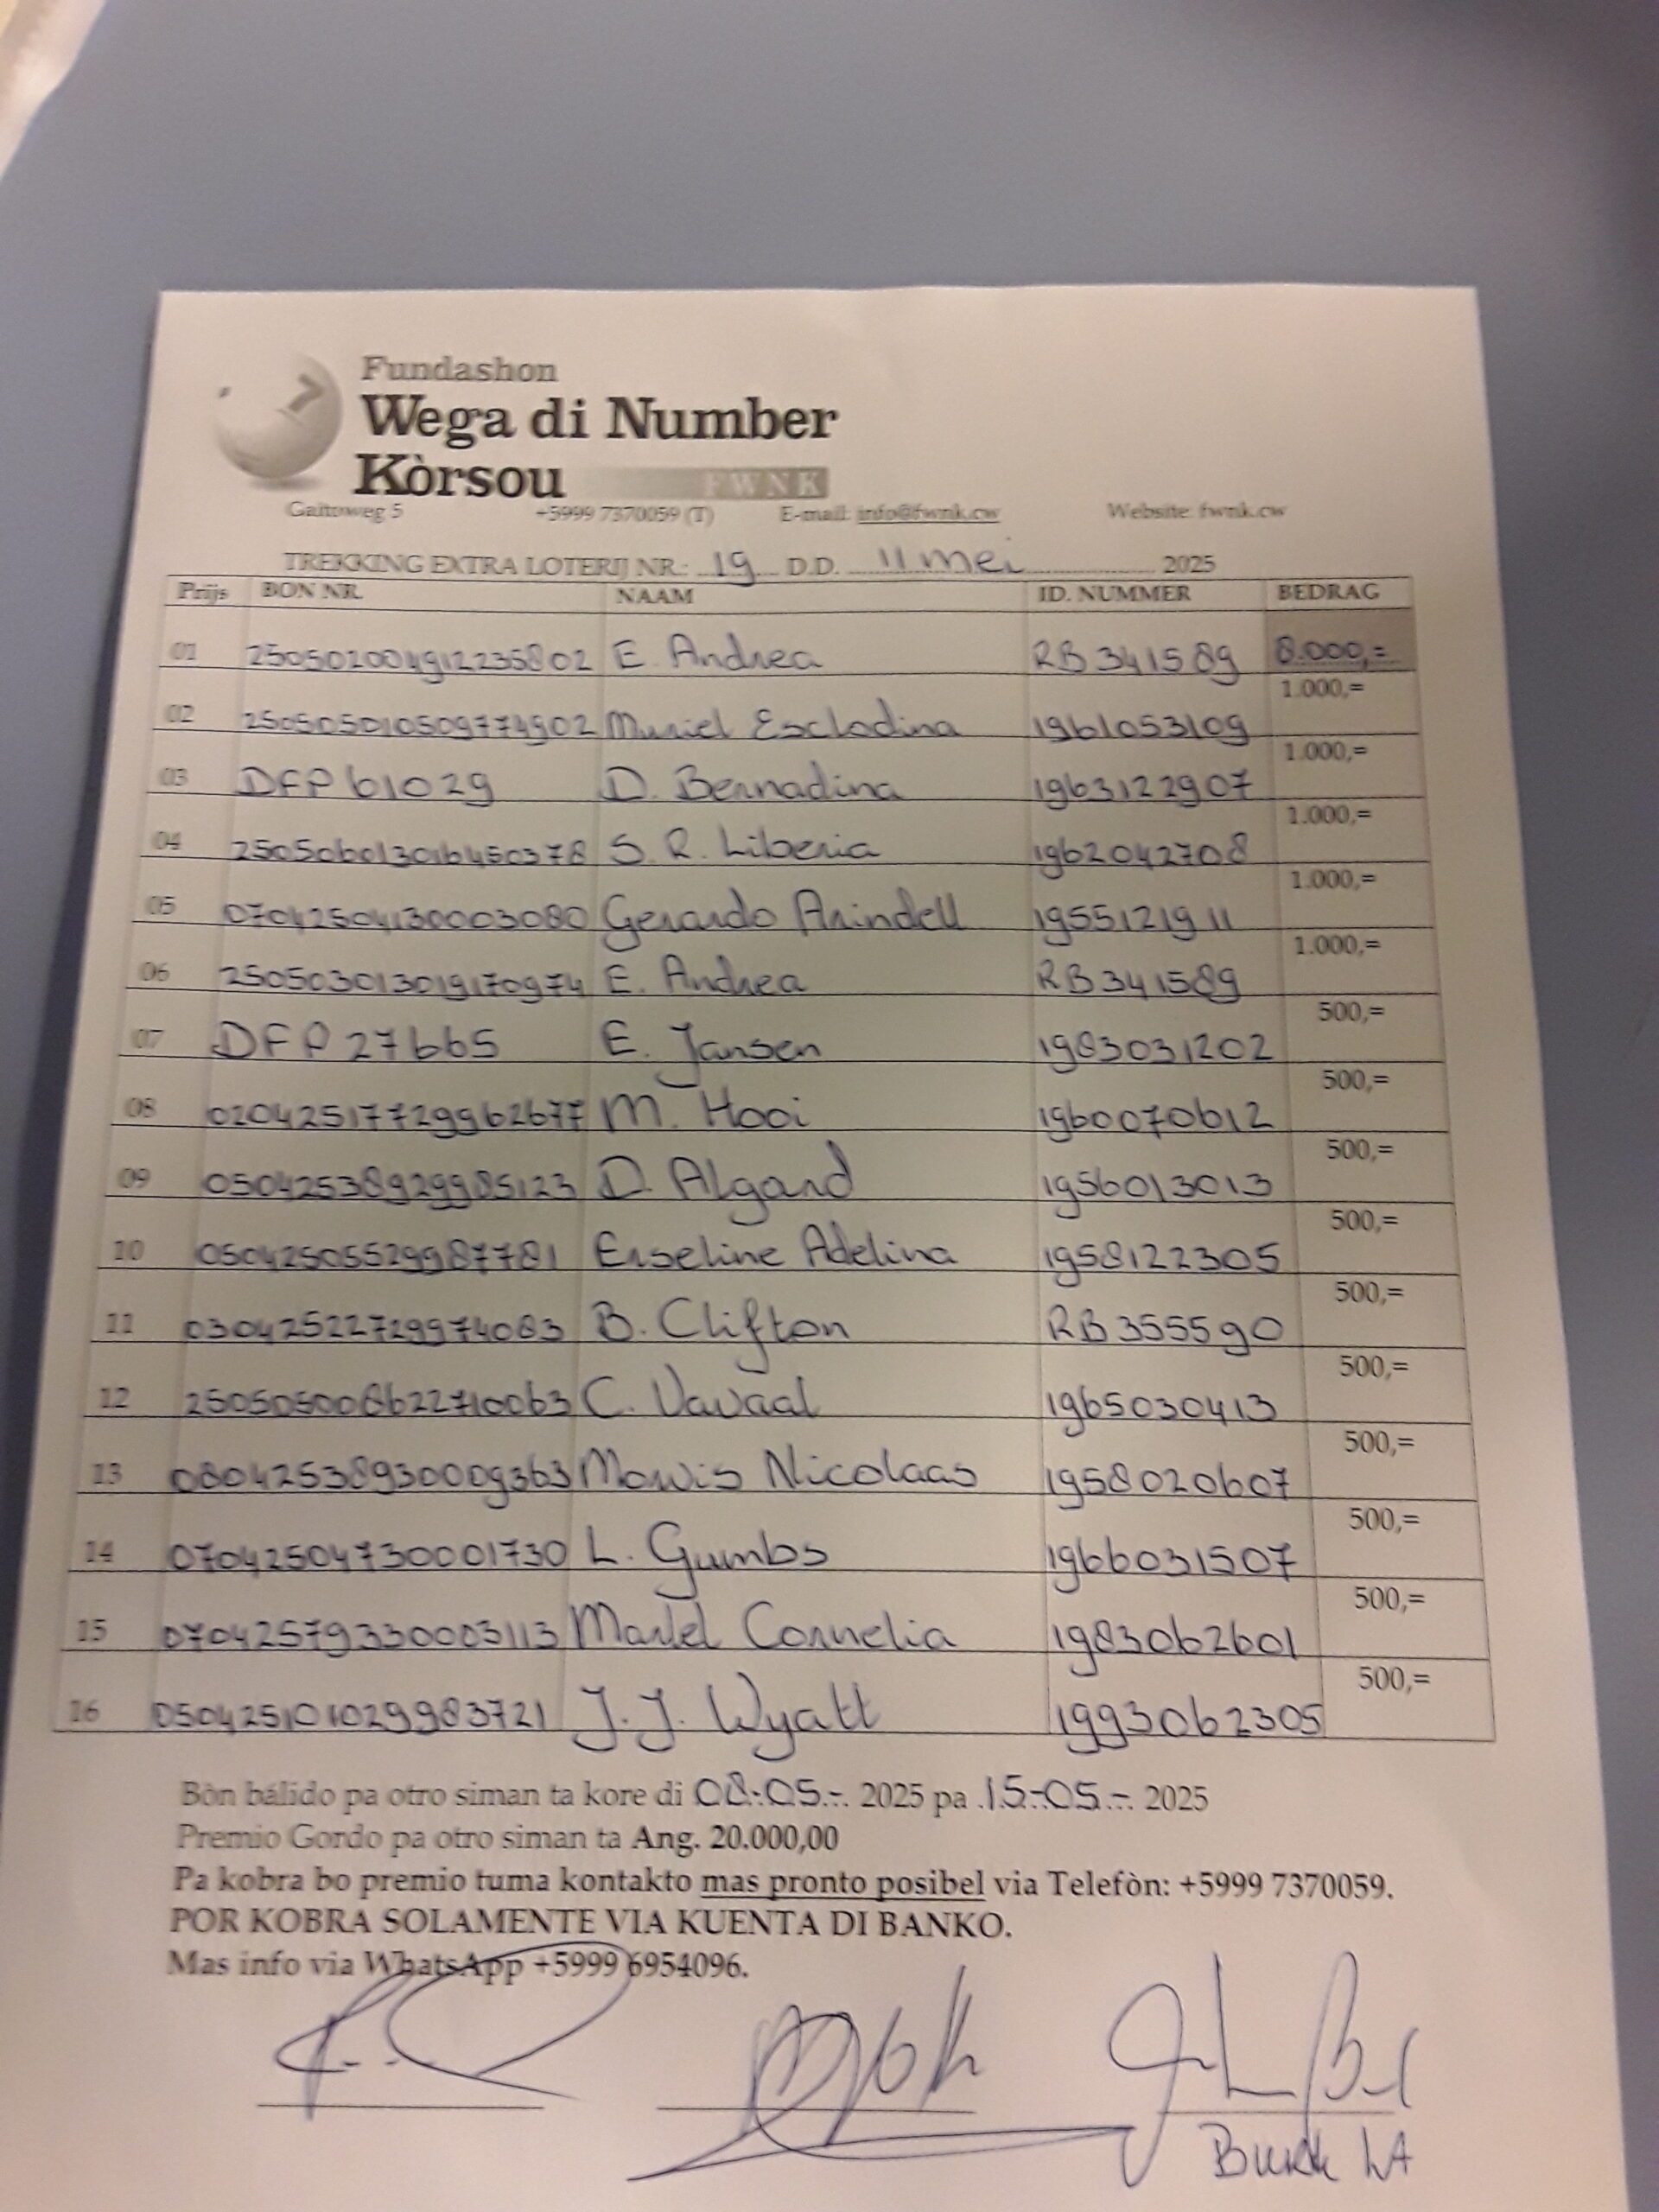 Fundashon
Wega di Number
Kòrsou FWNK
Gaitoweg 5 +5999 7370059 (T) E-mail: info@fwnk.cw Website: fwnk.cw
TREKKING EXTRA LOTERIJ NR.: 19 D.D. 11 mei 2025
Prijs BON NR. NAAM ID. NUMMER BEDRAG
01 2505020049122235802 E. Andrea RB341589 8.000,=
02 2505050105097774902 Muriel Escladina 1961053109 1.000,=
03 DFP 61029 D. Bernadina 1963122907 1.000,=
04 2505060130164503 78 S. R. Liberia 1962042708 1.000,=
05 07042504130003080 Gerardo Arindell 1955121911 1.000,=
06 250503013019170974 E. Andrea RB341589 1.000,=
07 DFP 27665 E. Jansen 1983031202 500,=
08 02042517729962677 M. Hooi 1960070612 500,=
09 05042538929985123 D. Algard 1956013013 500,=
10 05042505529987781 Erseline Adelina 1958122305 500,=
11 03042522729974083 B. Clifton RB355590 500,=
12 250505008622710063 C. Vavaal 1965030413 500,=
13 08042538930009363 Mowis Nicolaas 1958020607 500,=
14 07042504730001730 L. Gumbs 1966031507 500,=
15 07042579330003113 Marlel Cornelia 1983062601 500,=
16 05042510102998 3721 J. J. Wyatt 1993062305 500,=
Bòn bálido pa otro siman ta kore di 08-05-. 2025 pa 15-05-. 2025
Premio Gordo pa otro siman ta Ang. 20.000,00
Pa kobra bo premio tuma kontakto mas pronto posibel via Telefòn: +5999 7370059.
POR KOBRA SOLAMENTE VIA KUENTA DI BANKO.
Mas info via WhatsApp +5999 6954096.